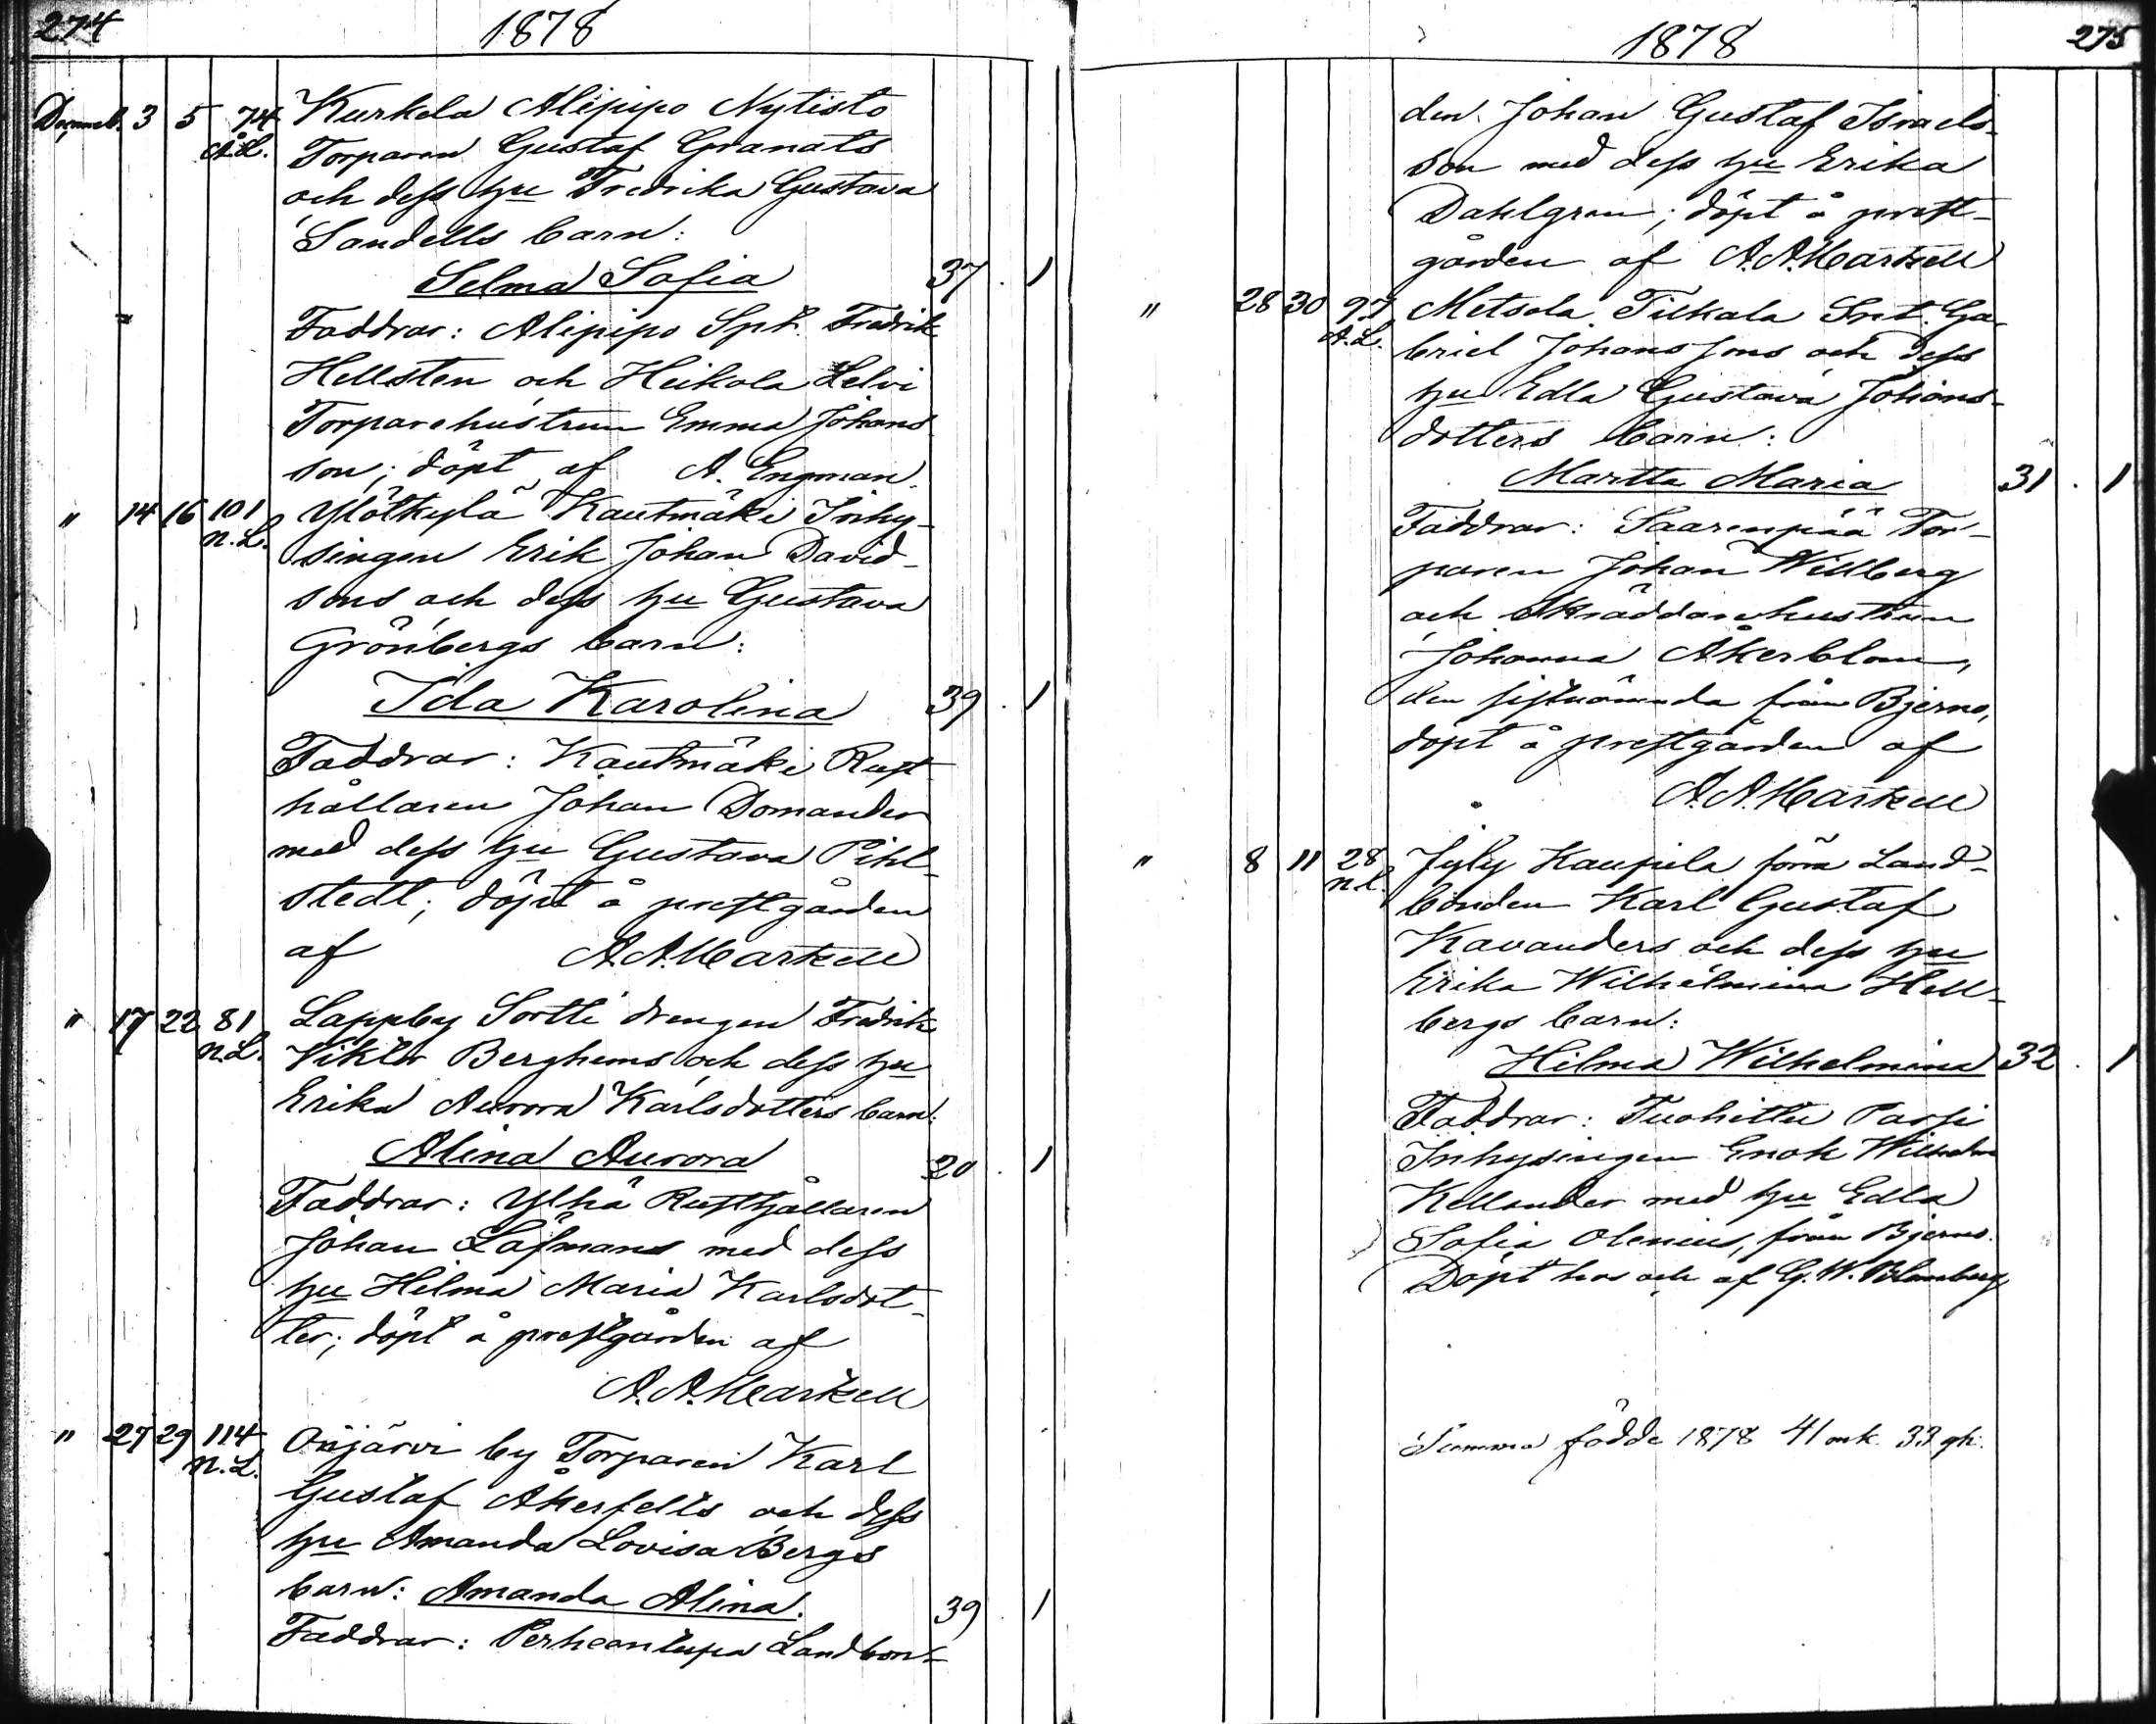 274
1878
Decemb. 3 5 74 Kurkela Alipipo Nytisto
Å.L. Torparen Gustaf Granats
och dess hu Fredrika Gustava
Sandells barn:
Selma Sofia 37 . 1
Faddrar: Alipipo Fredrik
Hellsten och Heikola Lelvi
Torparehustrun Emma Johans
son; döpt af A. Engman.
" 14 16 101 Ylötkylä Kautmäki Inhy-
n.L. singen Erik Johan David-
sons och dess hu Gustava
Grönbergs barn:
Ida Karolina 39 . 1
Faddrar: Kautmäki Rust
hållaren Johan Domander
med dess hu Gustava Pihl-
stedt; döpt å prestgården
af A.A.Markell
" 17 22 81 Lappby Sortti drengen Fredrik
n.L. Viktor Berghems och dess hu
Erika Aurora Karlsdotters barn:
Alina Aurora 20 . 1
Faddrar: Ylhä Rusthållaren
Johan Löfmans med dess
hu Hilma Maria Karlsdot-
ter; döpt å prestgården af
A.A.Markell
" 27 29 114 by Torparen Karl
n.L. Gustaf Åkerfelts och dess
hu Amanda Lovisa Bergs
barn: Amanda Alina. 39 1
Faddrar: Perheentupa Landbon-
1878
275
den Johan Gustaf Israels-
son med dess hu Erika
Dahlgren; döpt å prest-
gården af A.A.Markell
" 28 30 97 Metsola Tilkala Ga-
A.L. briel Johanssons och dess
hu Edla Gustava Johans-
dotters barn:
Martta Maria 31 . 1
Faddrar: Saarenpää Tor-
paren Johan Willberg
och Skräddarehustrun
Johanna Åkerblom,
den sistnämnda från Bjerno,
döpt å prestgården af
A.A.Markell
" 8 11 28 Jyly Kaupila förra Land-
n.l. bonden Karl Gustaf
Kavanders och dess hu
Erika Wilhelmina Hell-
bergs barn:
Hilma Wilhelmina 32 . 1
Faddrar: Tuohittu Parsi
Inhysingen Enok Wilhelm
Kellander med hu Edla
Sofia Olenius, från Bjerno.
Döpt hos och af G.W. Blomberg
Summa födde 1878 41 mk. 33 qk.